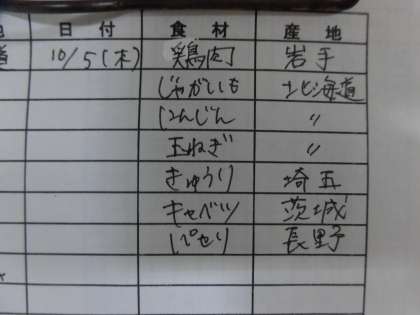 日付 食材 産地
道 10/5(木) 鶏肉 岩手
じゃがいも 北海道
にんじん 〃
玉ねぎ 〃
きゅうり 埼玉
キャベツ 茨城
パセリ 長野